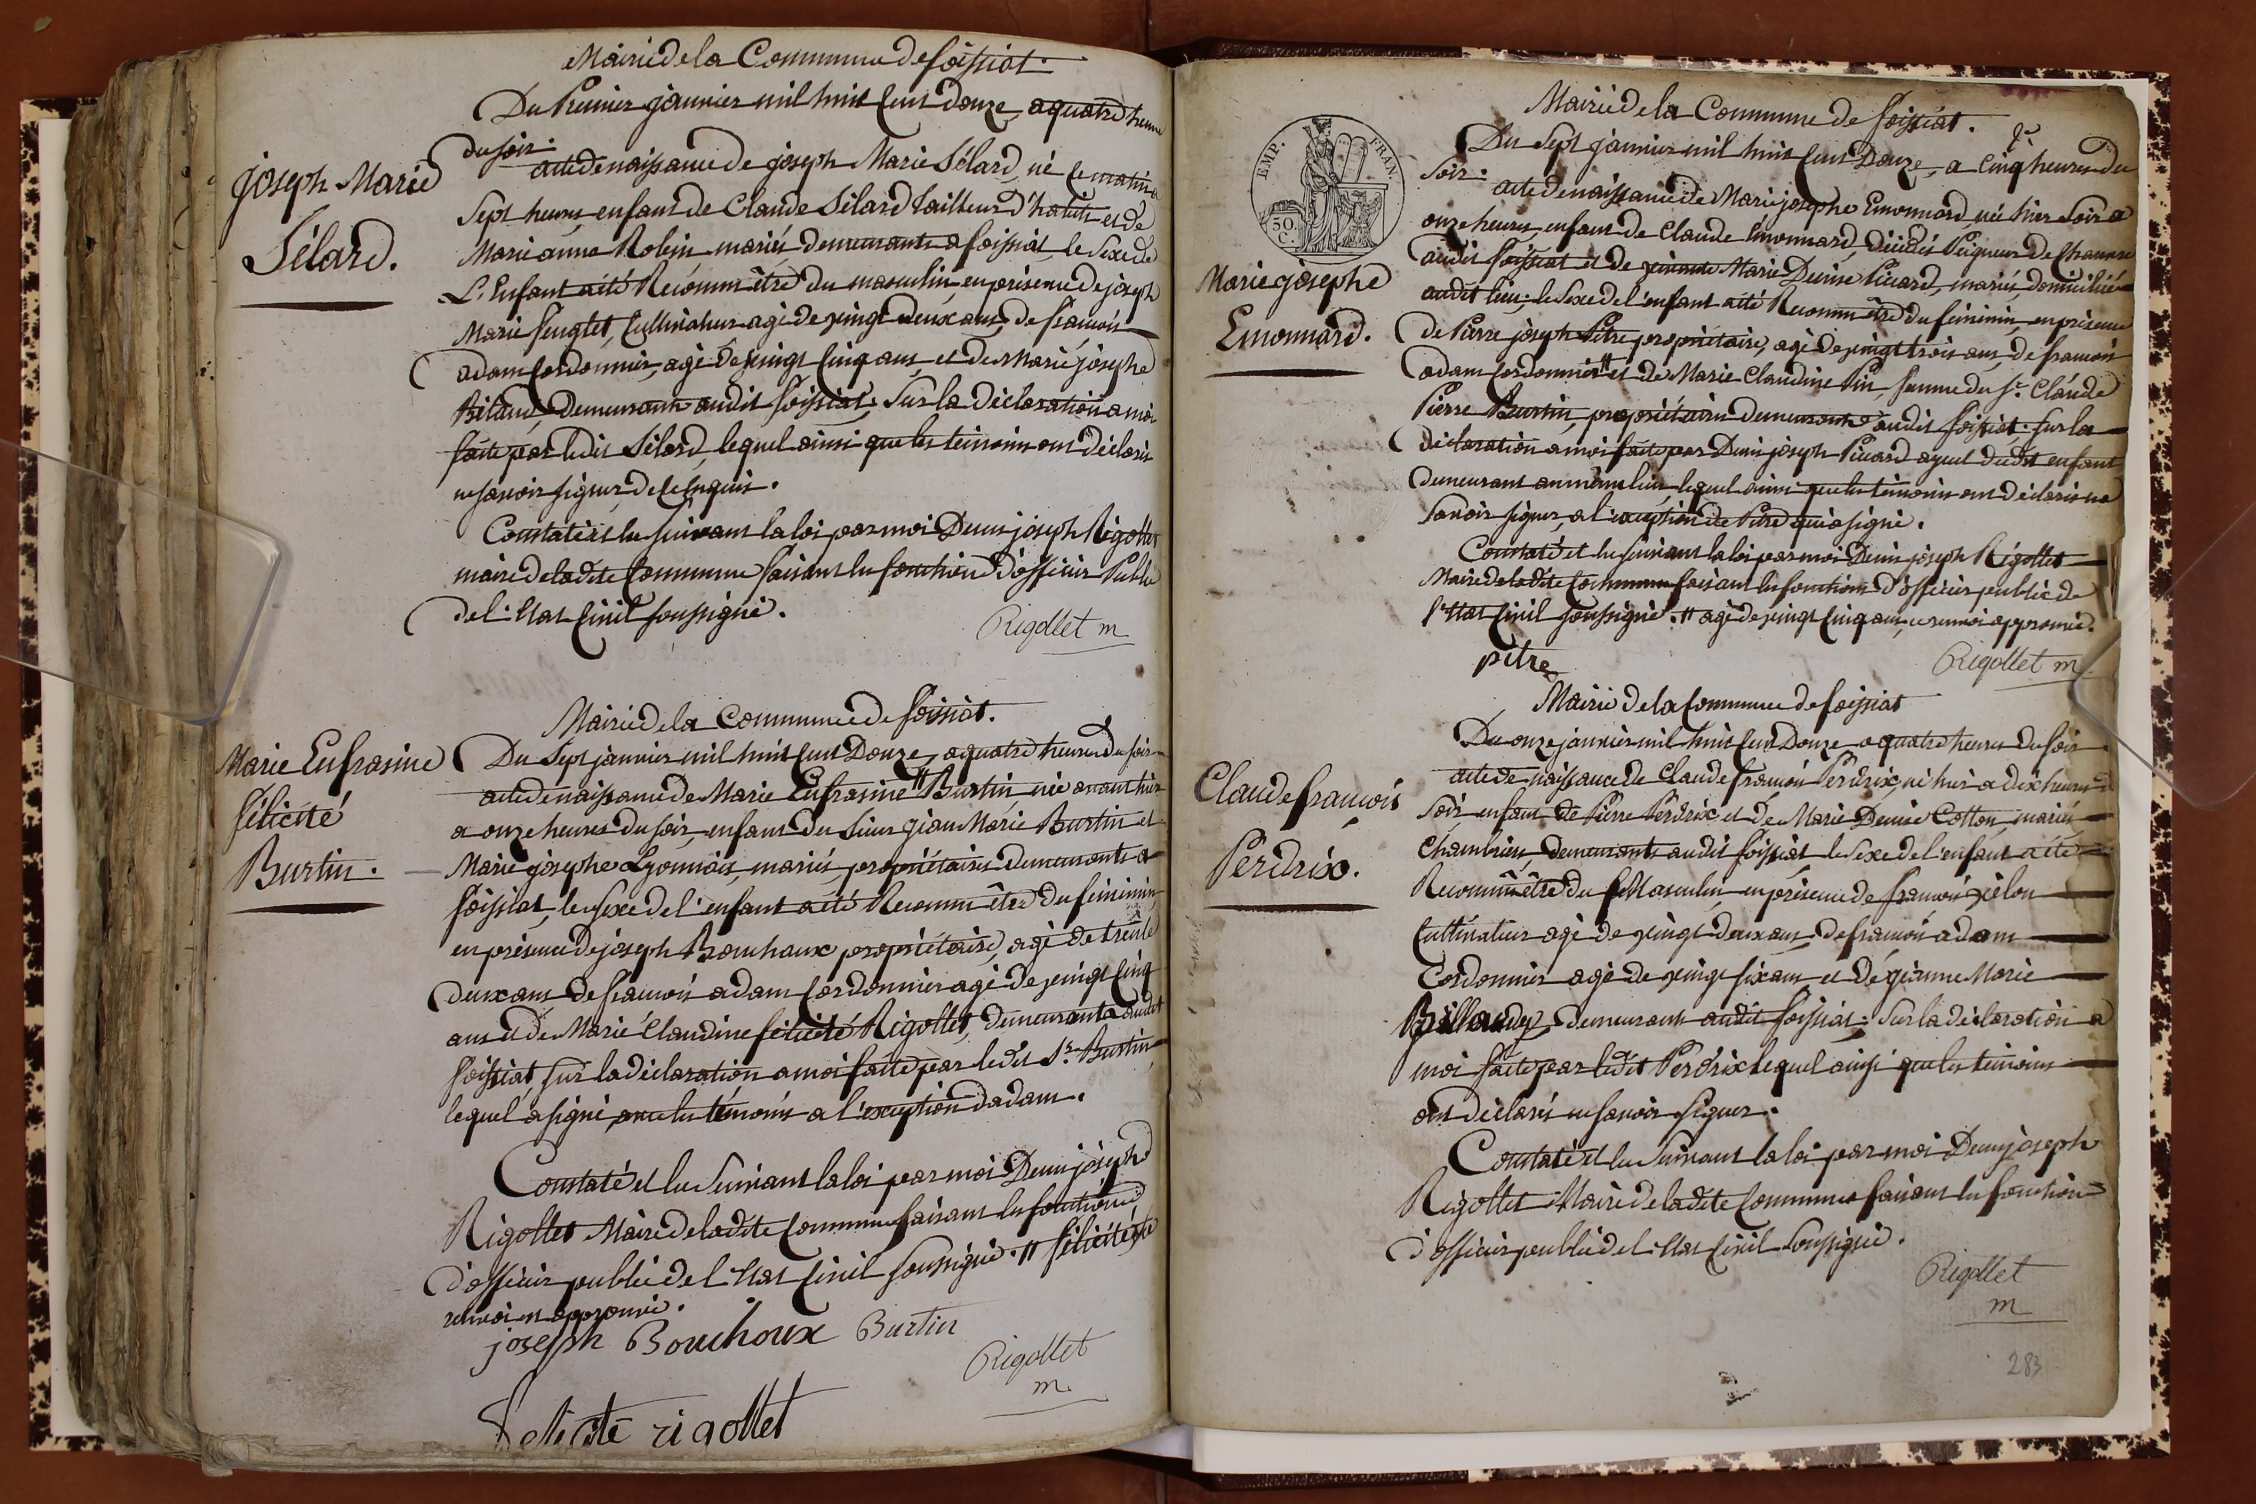 Mairie de la Commune de foissiat.
Du Premier janvier mil huit Cent douze, a quatre heures
du soir.
acte de naissance de joseph Marie Sélard, né ce matin a
joseph Marie
Sélard.
Sept heures, enfant de Claude Sélard tailleur d'habits et de
Marie anne Robin mariés demeurants a foissiat, le Sexe de
L'Enfant a été Reconnu être du masculin, en présence de joseph
Marie feuglet, Cultivateur agé de vingt deux ans, de françois
adam Cordonnier, agé de vingt Cinq ans, et de Marie josephe
Biland, demeurant audit foissiat; Sur la déclaration a moi
faite par ledit Sélard, lequel ainsi que les témoins ont déclarés
ne savoir signer de ce enquis.
Constaté et lu suivant la loi par moi Denis joseph Rigollet
maire de ladite Commune faisant les fonctions d'officier Public
de l'état Civil soussigné.
Rigollet m
Mairie de la Commune de foissiat.
Marie Eufrasine
félicité
Burtin.
Du Sept janvier mil huit Cent Douze, a quatre heures du soir
acte de naissance de Marie Eufrasine # Burtin née avant hier
a onze heures du soir, enfant du Sieur jean Marie Burtin et
Marie josephe Lyonnois, mariés, propriétaires demeurants a
foissiat, le sexe de l'enfant a été Reconnu être du féminin
en présence de joseph Bouchoux propriétaire, agé de trente
deux ans de françois adam Cordonnier agé de vingt Cinq
ans et de Marie Claudine félicité Rigollet, demeurants audit
foissiat, sur la déclaration a moi faite par ledit Sr. Burtin
lequel a signé avec les témoins a l'exception d'adam.
Constaté et lu Suivant la loi par moi Denis joseph
Rigollet Maire de ladite Commune faisant les fonctions
d'officier public de l'état Civil soussigné. # félicité
renvoi approuvé.
joseph Bouchoux Burtin
Rigollet
m.
fellicite rigollet
EMP. FRAN.
50.
C.
Mairie de la Commune de foissiat.
Du Sept janvier mil huit Cent Douze, a Cinq heures du
Soir.
acte de naissance de Marie josephe Emonnard, née hier Soir a
Marie josephe
Emonnard.
onze heures, enfant de Claude Emonnard, décédé Peigneur de Chanvre
audit foissiat et de Marie Denise Picard, mariés, domiciliés
audit lieu; le Sexe de l'enfant a été Reconnu être du féminin, en présence
de Pierre joseph Pitre propriétaire, agé de vingt trois ans, de françois
adam Cordonnier # et de Marie Claudine Pin, femme du Sr. Claude
Pierre Burtin, propriétaire demeurants audit foissiat; sur la
déclaration a moi faite par Denis joseph Picard ayeul dudit enfant
demeurant au même lieu, lequel ainsi que les témoins ont déclarés ne
savoir signer, a l'exception de Pitre qui a signé.
Constaté et lu suivant la loi par moi Denis joseph Rigollet
Maire de ladite Commune faisant les fonctions d'officier public de
l'état Civil soussigné. # agé de vingt Cinq ans, ce renvoi approuvé.
pitre
Rigollet m
Mairie de la Commune de foissiat
Du onze janvier mil huit Cent Douze a quatre heures du soir
acte de naissance de Claude françois Perdrix, né hier a dix heures du
Claude françois
Perdrix.
Soir, enfant de Pierre Perdrix et de Marie Denise Cotton, mariés
Chambriers, demeurants audit foissiat le sexe de l'enfant a été
Reconnu être du Masculin, en présence de françois
Cultivateur agé de vingt deux ans, de françois adam
Cordonnier agé de vingt six ans et de jeanne Marie
demeurant audit foissiat. Sur la déclaration a
moi faite par ledit Perdrix lequel ainsi que les témoins
ont déclarés ne savoir signer.
Constaté et lu Suivant la loi par moi Denis joseph
Rigollet Maire de ladite Commune faisant les fonctions
d'officier public de l'état Civil soussigné.
Rigollet
m
283